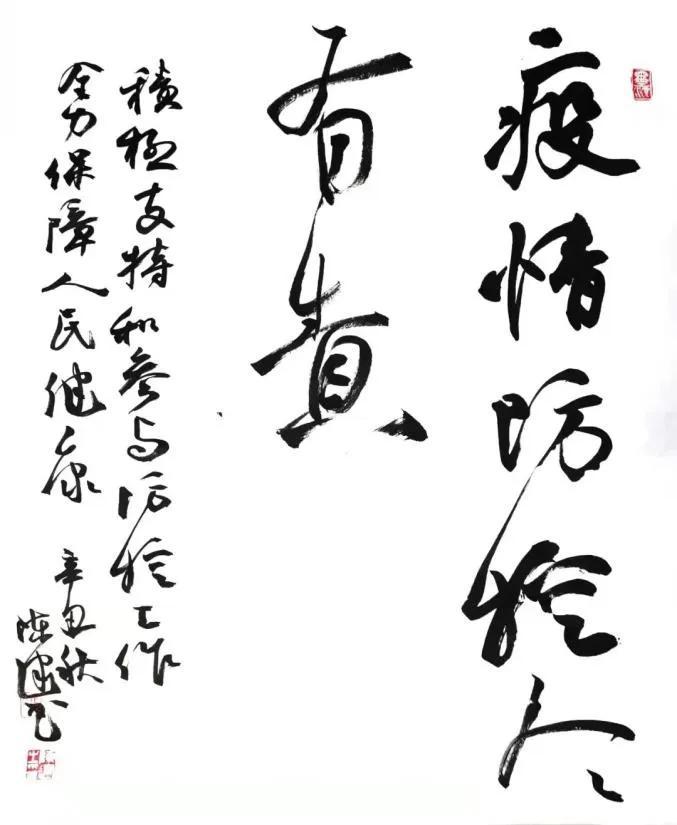 疫情防控人々
有責
積極支持和参与防控工作
全力保障人民健康
辛丑秋